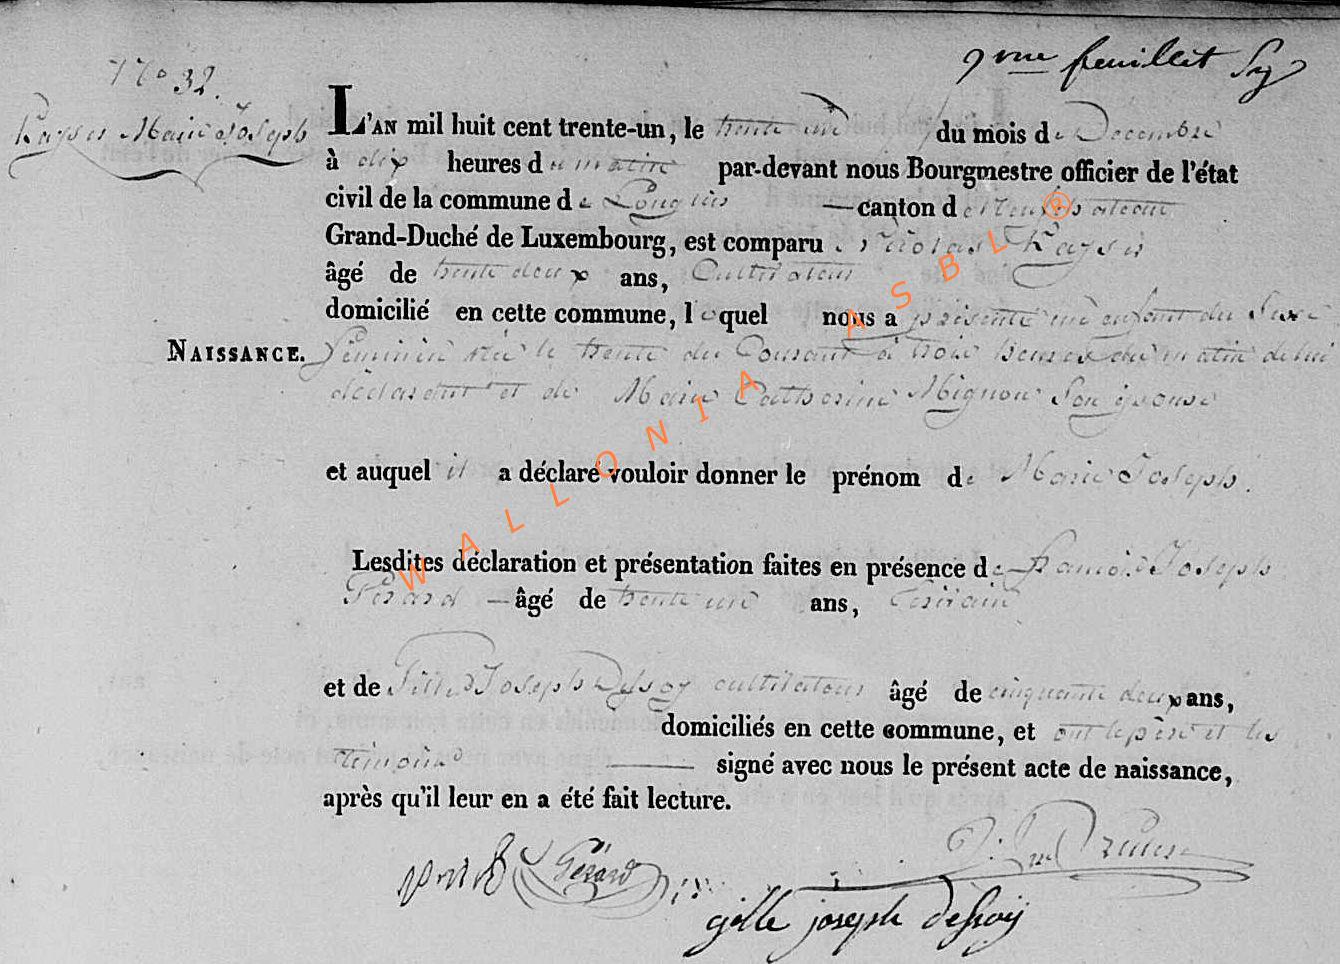 9me feuillet Sy
No 32.
Kayser Marie Joseph
L'AN mil huit cent trente-un, le trente une du mois de Decembre
à dix heures du matin par-devant nous Bourgmestre officier de l'état
civil de la commune de Longlier — canton de Neufchateau
Grand-Duché de Luxembourg, est comparu Nicolas Kayser
âgé de trente deux ans, Cultivateur
domicilié en cette commune, lequel nous a présenté un enfant du Sexe
NAISSANCE. Féminin née le trente du Courant à trois heures du matin de lui
déclarant et de Marie Catherine Mignon Son épouse
et auquel il a déclaré vouloir donner le prénom de Marie Joseph.
Lesdites déclaration et présentation faites en présence de François Joseph
Gérard — âgé de trente une ans,
et de Gille Joseph Dessoy cultivateur âgé de cinquante deux ans,
domiciliés en cette commune, et ont le père et les
témoins — signé avec nous le présent acte de naissance,
après qu'il leur en a été fait lecture.
Gérard
gille joseph dessoy
WALLONIA ASBL ®